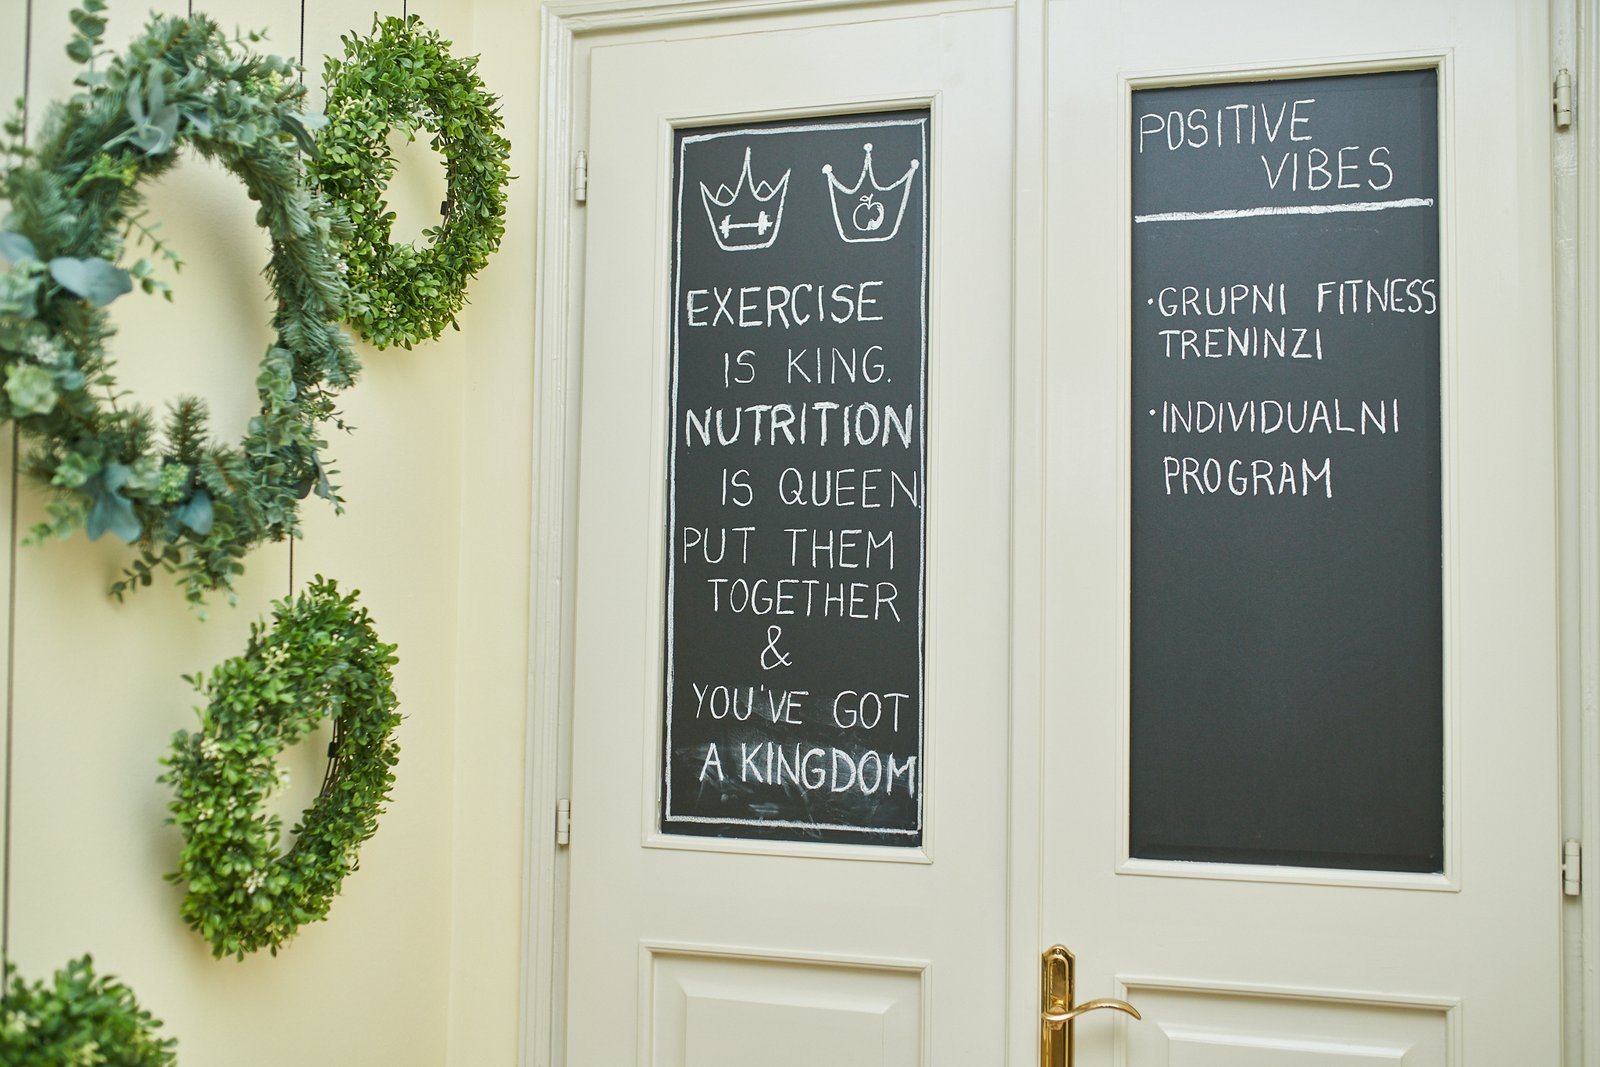 EXERCISE
IS KING.
NUTRITION
IS QUEEN.
PUT THEM
TOGETHER
&
YOU'VE GOT
A KINGDOM
POSITIVE
VIBES
·GRUPNI FITNESS
TRENINZI
·INDIVIDUALNI
PROGRAM